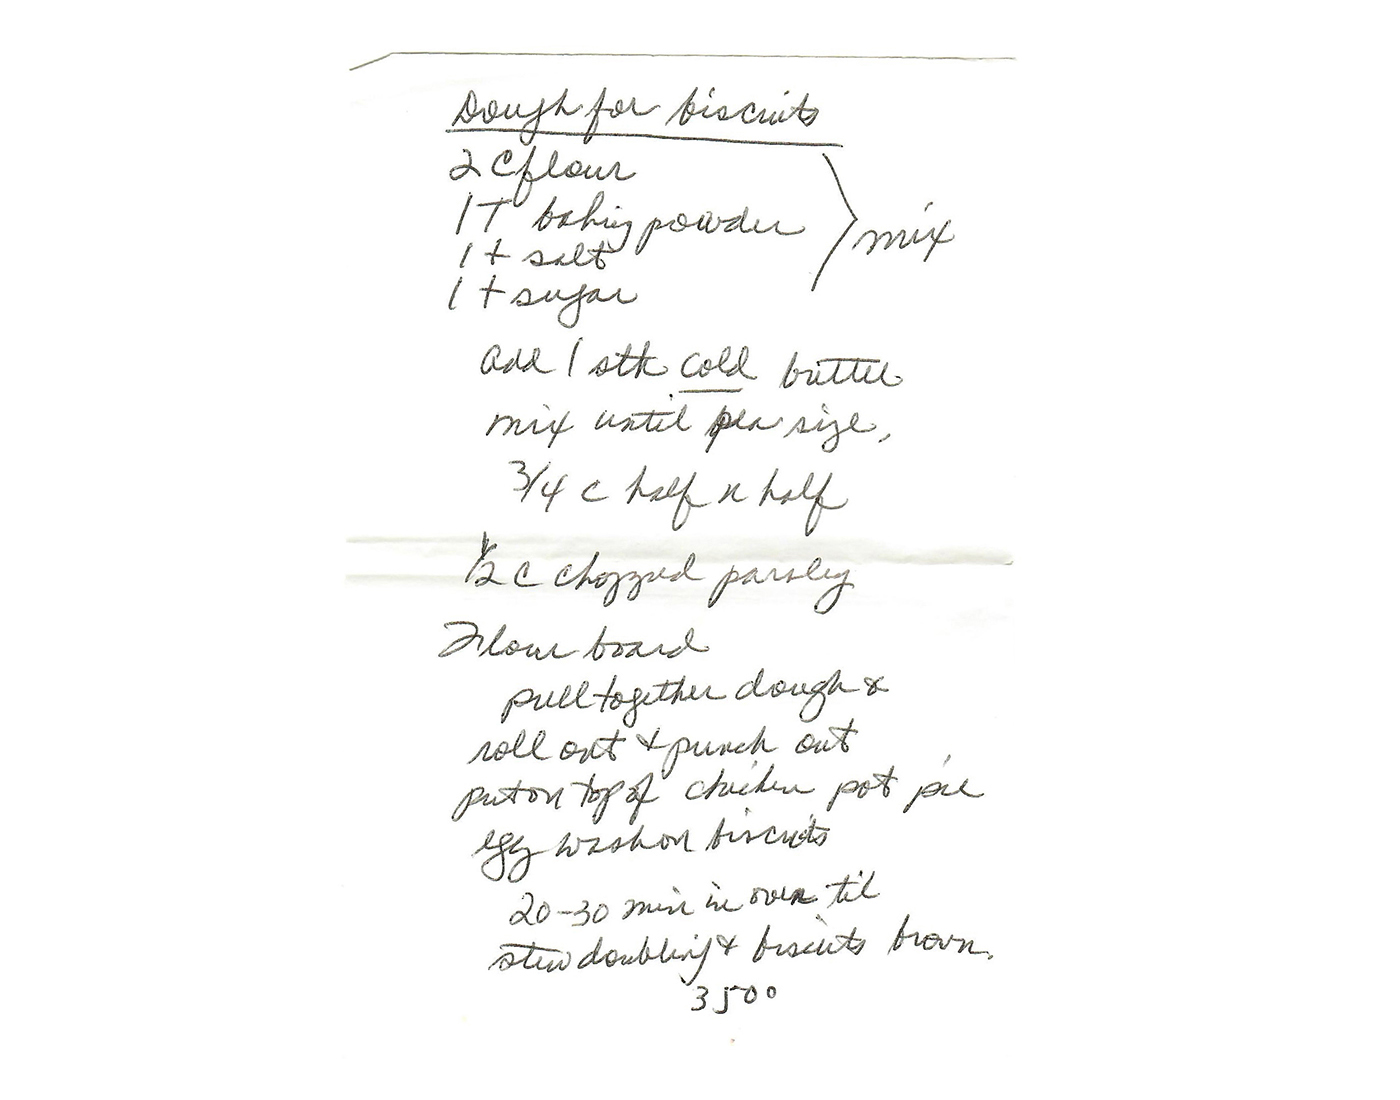 Dough for biscuits
2 C flour
1 T baking powder
1 t salt
1 t sugar
mix
add 1 stk cold butter
mix until pea size,
3/4 c half n half
1/2 c chopped parsley
Flour board
pull together dough &
roll out & punch out
put on top of chicken pot pie
egg wash on biscuits
20-30 min in oven til
stew doubling & biscuits brown.
350°